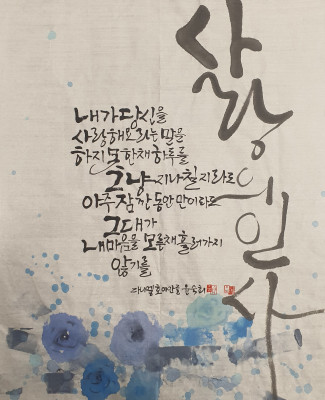 사랑의 인사
내가 당신을
사랑해요라는 말을
하지 못한채 하루를
그냥 지나칠지라도
아주 잠깐동안 만이라도
그대가
내마음을 모른채 흘러가지
않기를